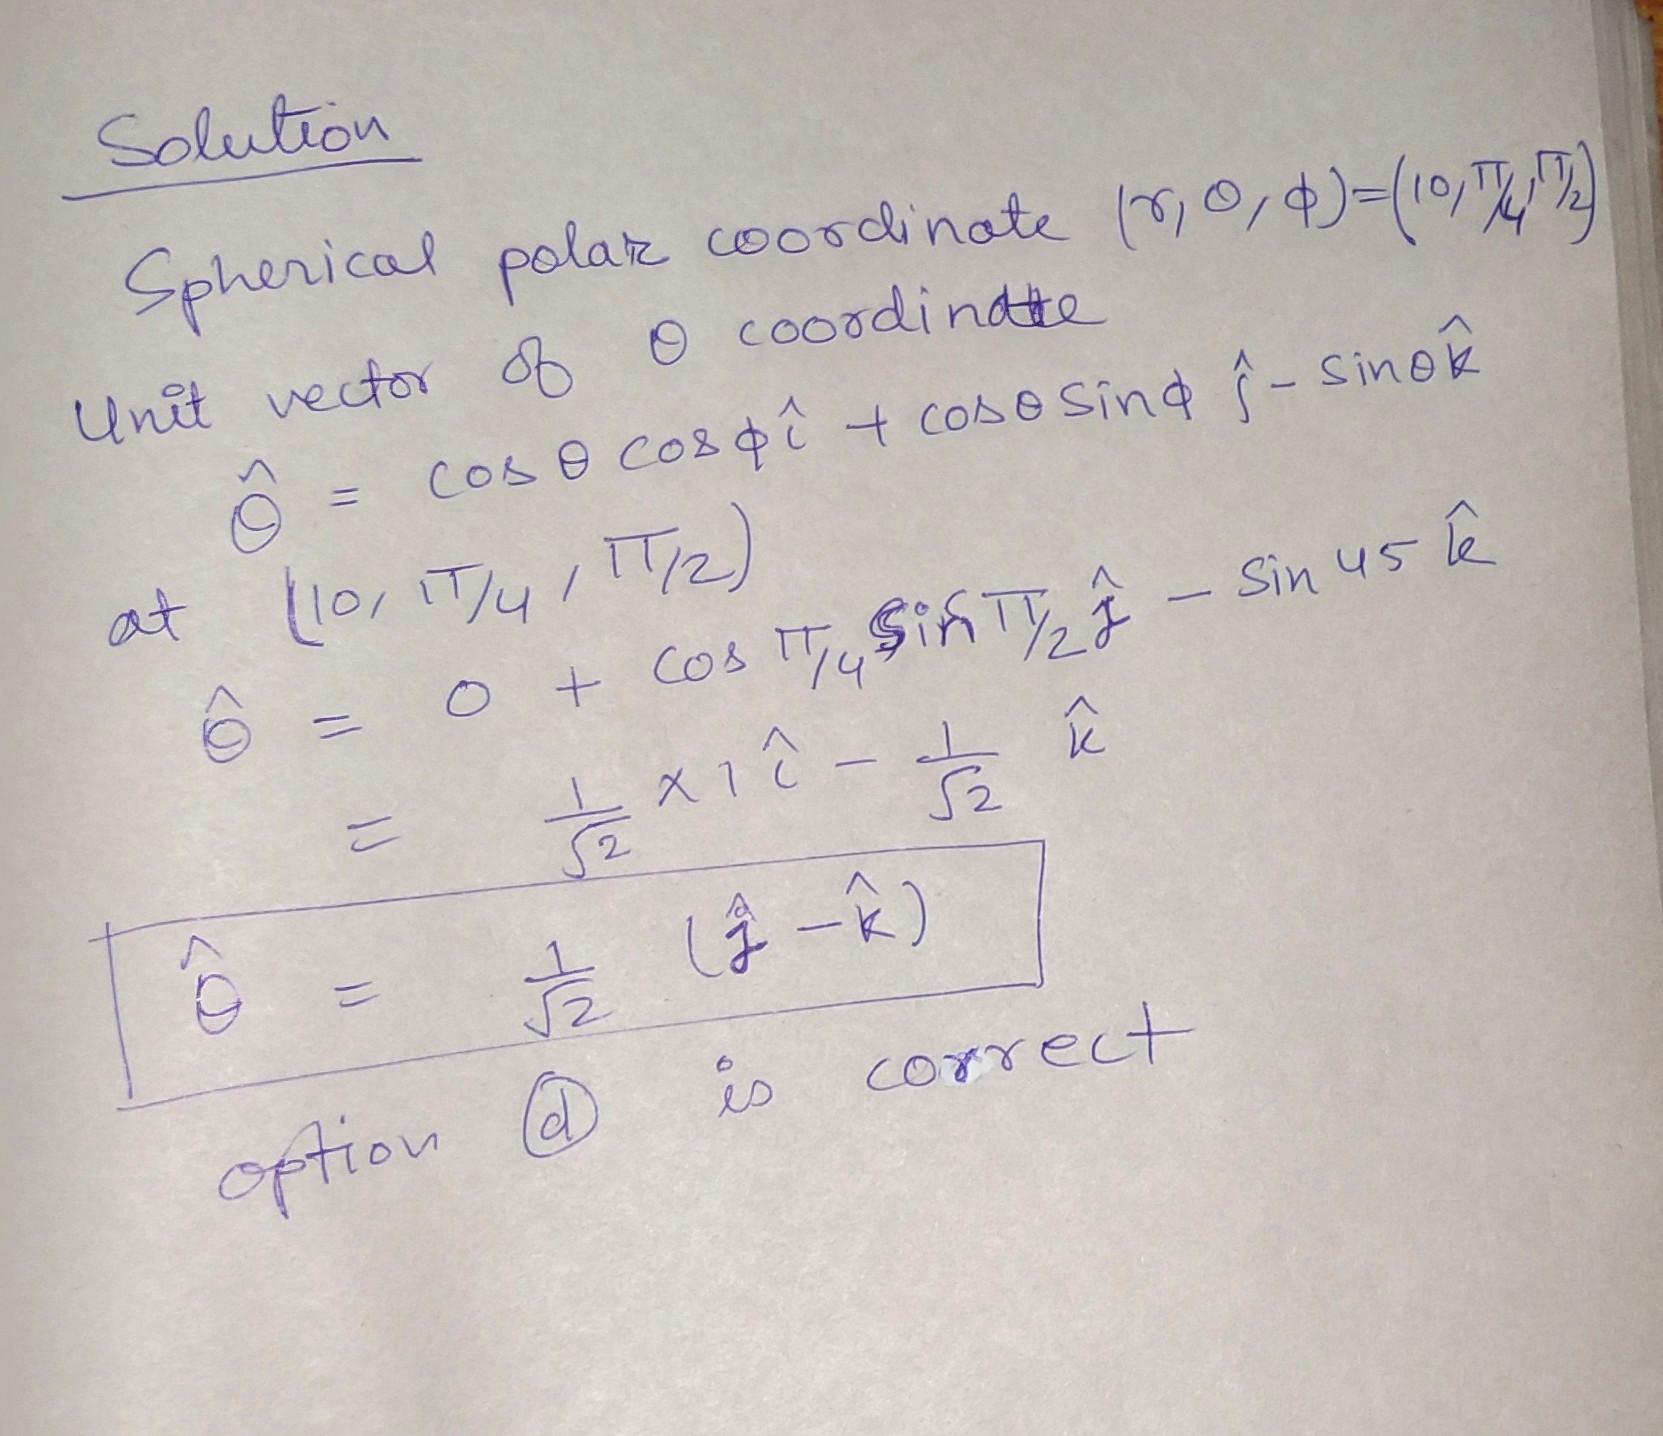 Solution
Spherical polar coordinate (r, θ, φ)=(10, π/4, π/2)
Unit vector of θ coordinate
θ̂ = cos θ cos φ î + cos θ sin φ ĵ - sin θ k̂
at (10, π/4, π/2)
θ̂ = 0 + cos π/4 sin π/2 ĵ - sin 45 k̂
= 1/√2 × 1 î - 1/√2 k̂
θ̂ = 1/√2 (ĵ - k̂)
option ⓓ is correct